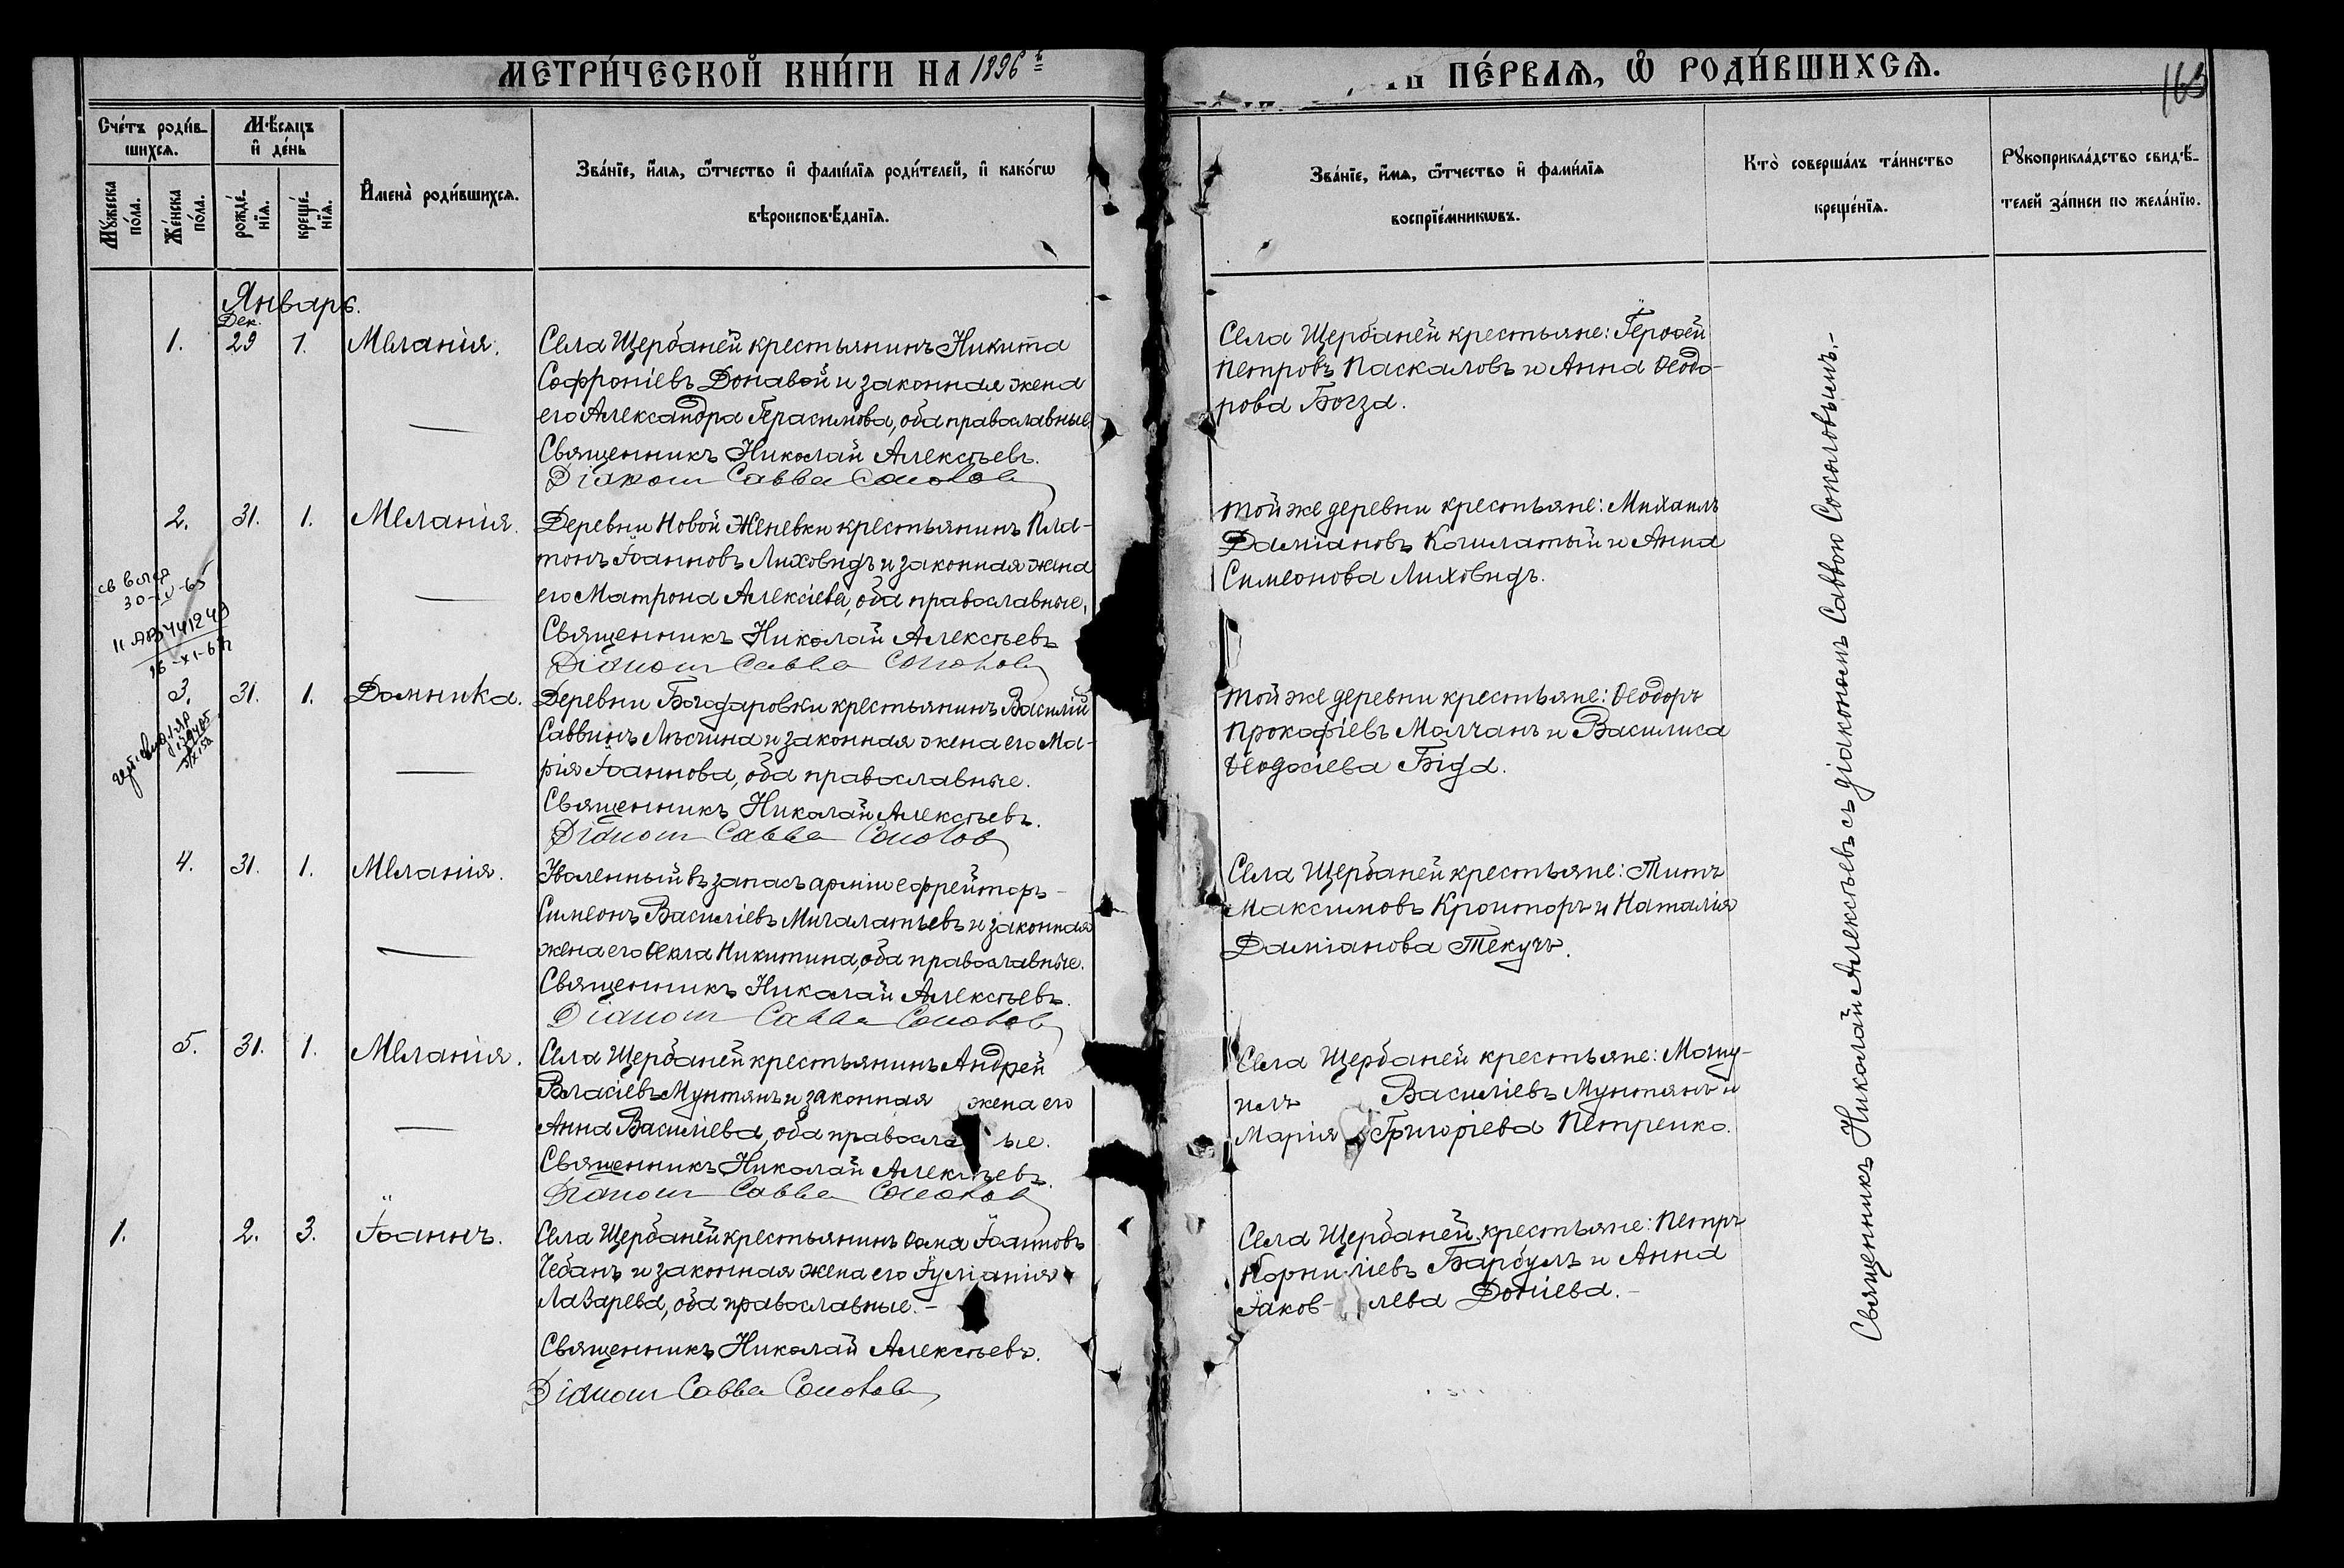 МЕТРИ́ЧЕСКОЙ КНИ́ГИ НА 1896 г.
ПЕ́РВАѦ, Ѡ҆ РОДИ́ВШИХСѦ.
163
Сче́тъ роди́в-
шихсѧ.
Мѣ́сѧцъ
и҆ де́нь
Мꙋ́жеска
по́ла.
Же́нска
по́ла.
рожде́-
нїѧ.
креще́-
нїѧ.
И҆мена̀ роди́вшихсѧ.
Зва́нїе, и҆́мѧ, ѻ҆́тчество и҆ фами́лїѧ роди́телей, и҆ како́гѡ
вѣроисповѣ́данїѧ.
Зва́нїе, и҆́мѧ, ѻ҆́тчество и҆ фами́лїѧ
воспрїе́мникѡвъ.
Кто̀ соверша́лъ та́инство
креще́нїѧ.
Рꙋкоприкла́дство свидѣ́-
телей за́писи по жела́нїю.
Январь.
Дек.
1. 29 1. Меланія.
Села Щербаней крестьянинъ Никита
Софроніевъ Донавой и законная жена
его Александра Герасимова, оба православные
Священникъ Николай Алексѣевъ.
Діаконъ Савва Соколов
Села Щербаней крестьяне: Герофей
Петровъ Паскаловъ и Анна Ѳеодо-
рова Богза.
2. 31. 1. Меланія.
Деревни Новой Женевки крестьянинъ Пла-
тонъ Іоанновъ Лиховидъ и законная жена
его Матрона Алексіева, оба православные,
Священникъ Николай Алексѣевъ
Діаконъ Савва Соколов
Той же деревни крестьяне: Михаилъ
Даміановъ Кошлатый и Анна
Симеонова Лиховидъ.
30-IV-65
3. 31. 1. Домника.
Деревни Богодаровки крестьянинъ Василій
Саввинъ Лѣсчина и законная жена его Ма-
рія Іоаннова, оба православные.
Священникъ Николай Алексѣевъ.
Діаконъ Савва Соколов
Той же деревни крестьяне: Ѳеодоръ
Прокофіевъ Молчанъ и Василиса
Ѳеодосіева Біда.
4. 31. 1. Меланія.
Уволенный въ запасъ арміи ефрейторъ-
Симеонъ Василіевъ Мигалатьевъ и законная
жена его Ѳекла Никитина, оба православные.
Священникъ Николай Алексѣевъ.
Діаконъ Савва Соколов
Села Щербаней крестьяне: Титъ
Максимовъ Кроиторъ и Наталія
Даміанова Текучъ.
5. 31. 1. Меланія.
Села Щербаней крестьянинъ Андрей
Власіевъ Мунтянъ и законная жена его
Анна Василіева, оба правосла ые.
Священникъ Николай Алексѣевъ.
Діаконъ Савва Соколов
Села Щербаней крестьяне:
Василіевъ Мунтянъ и
Марія Григоріева Петренко.
1. 2. 3. Іоаннъ.
Села Щербаней крестьянинъ Ѳома Іоанновъ
Чебанъ и законная жена его Іуліанія
Лазарева, оба православные.-
Священникъ Николай Алексѣевъ.
Діаконъ Савва Соколов
Села Щербаней крестьяне: Петръ
Корниліевъ Барбулъ и Анна
Іаков- лева Доніева.-
Священникъ Николай Алексѣевъ съ діакономъ Саввою Соколовымъ.-